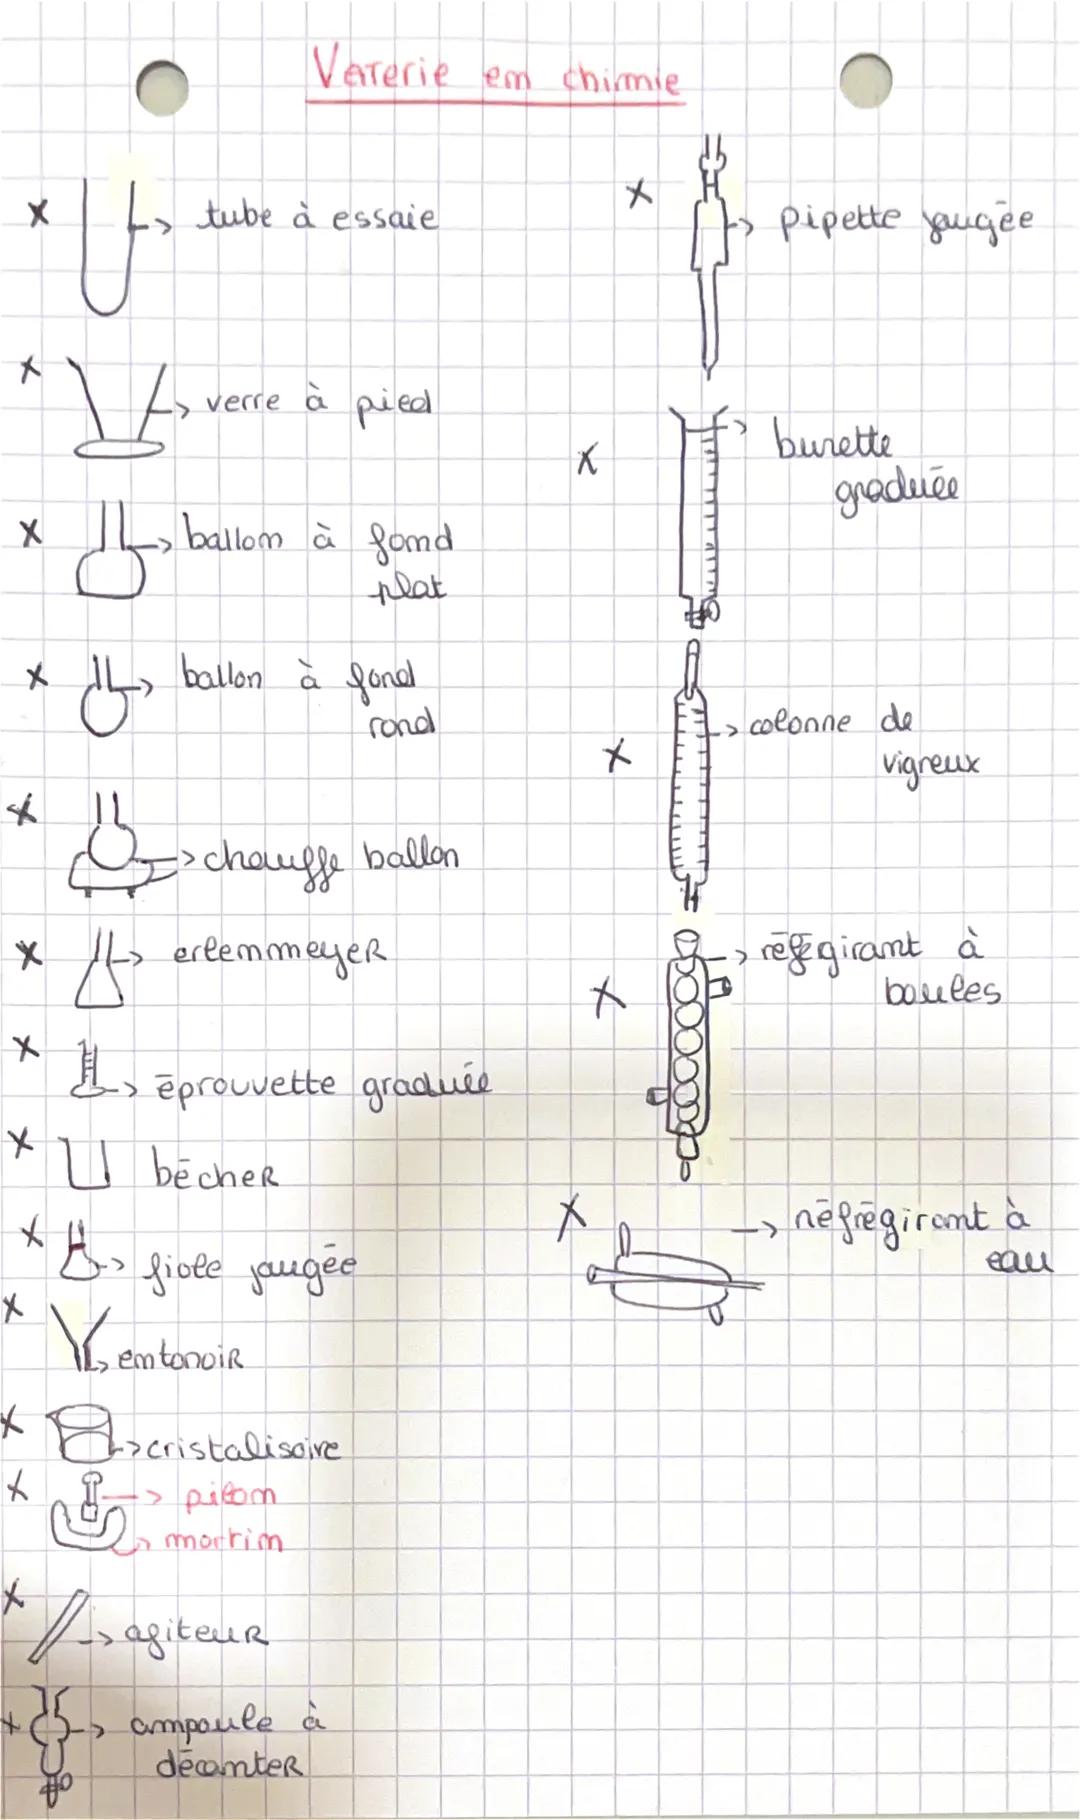 Verrerie em chimie
tube à essaie
verre à pied
ballom à fond
plat
ballon à fond
rond
chauffe ballon
erlemmeyer
éprouvette graduée
bécher
fiole jaugée
emtonoir
cristalisoire
pilom
mortim
agiteur
ampoule à
décanter
pipette jaugée
burette
graduée
colonne de
vigreux
boules
réfrégirant à
eau